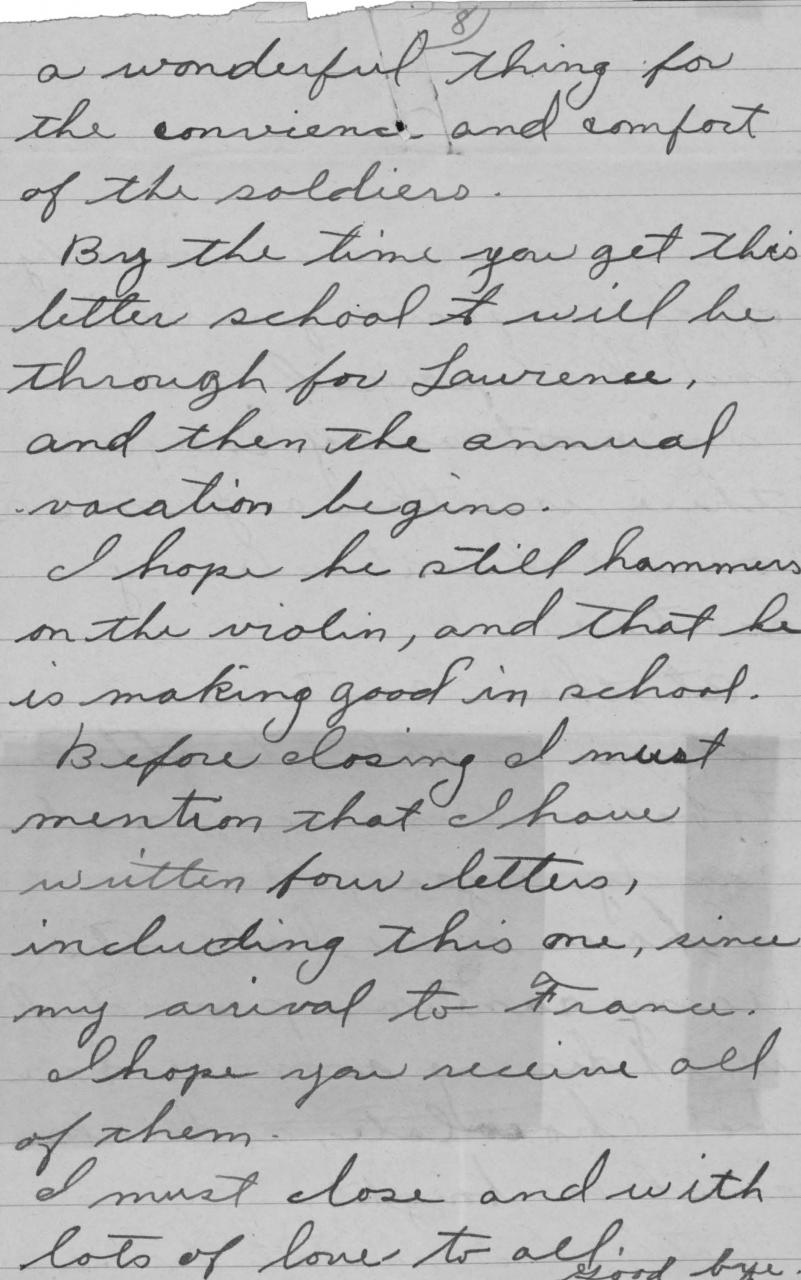 8)
a wonderful thing for
the convienc and comfort
of the soldiers.
By the time you get this
letter school will be
through for Lawrence,
and then the annual
vacation begins.
I hope he still hammers
on the violin, and that he
is making good in school.
Before closing I must
mention that I have
written four letters,
including this one, since
my arrival to France.
I hope you receive all
of them.
I must close and with
lots of love to all.
Good bye.